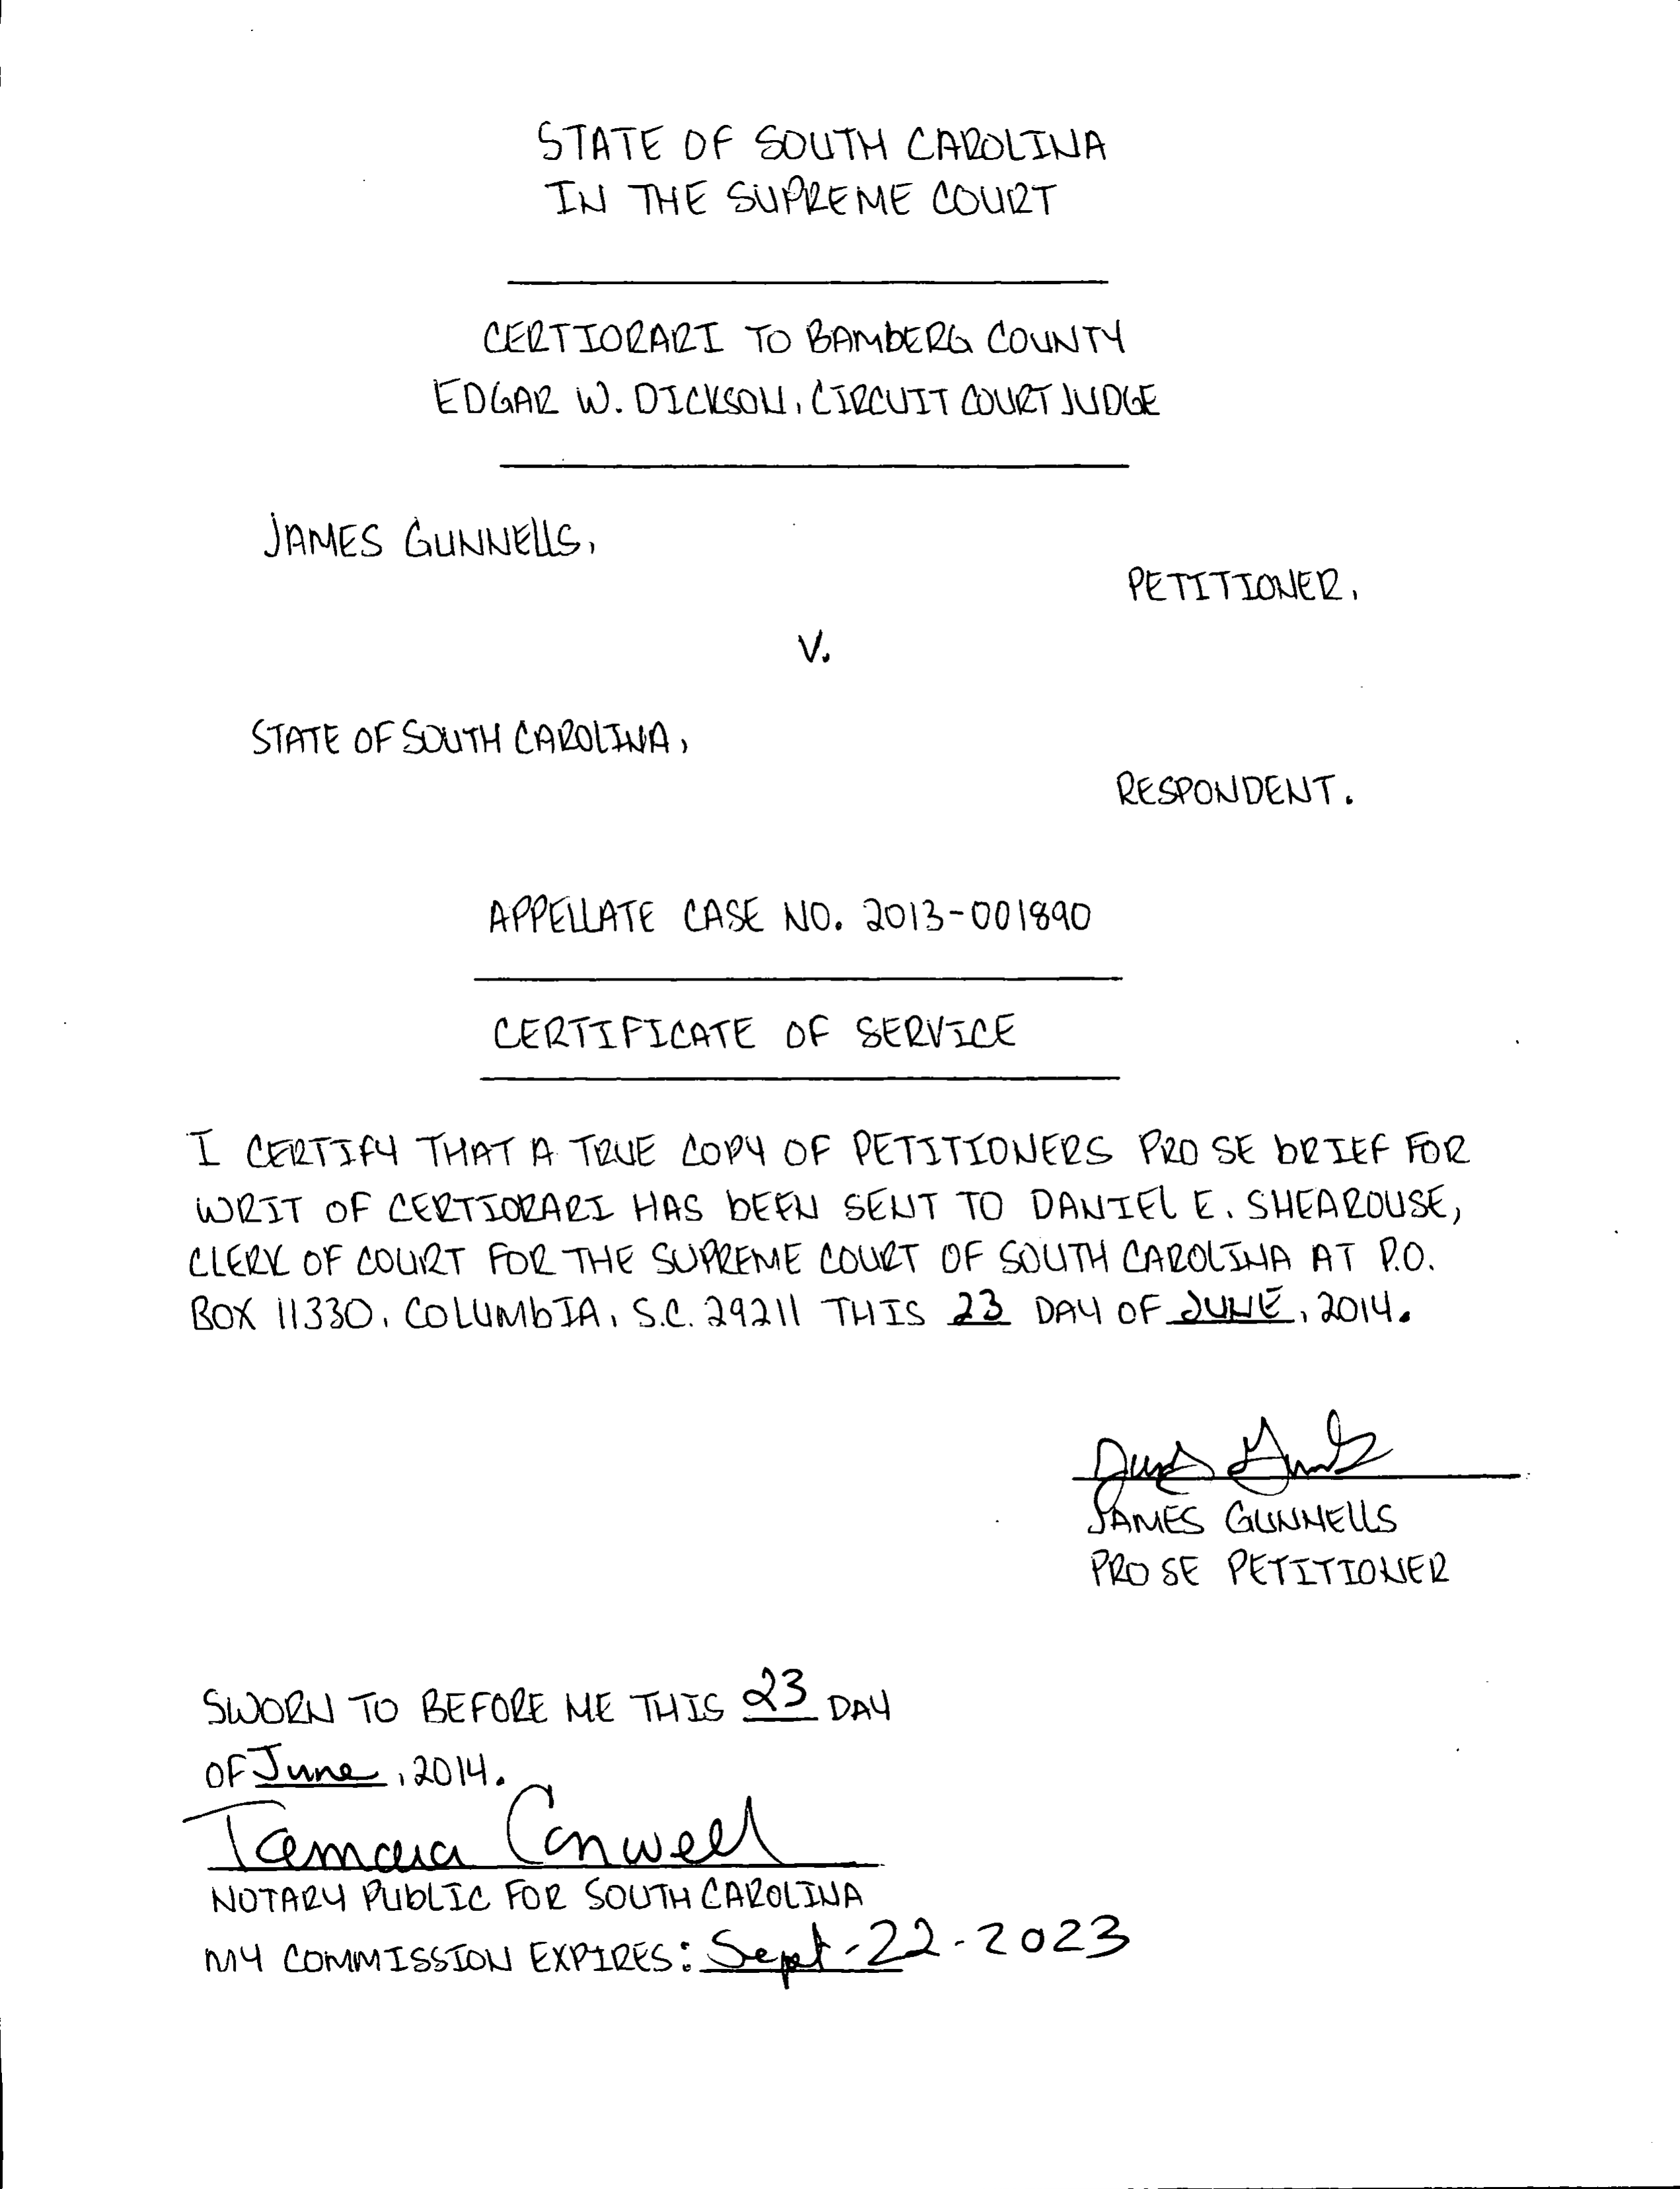 STATE OF SOUTH CAROLINA
IN THE SUPREME COURT
CERTIORARI TO BAMBERG COUNTY
EDGAR W. DICKSON, CIRCUIT COURT JUDGE
JAMES GUNNELLS,
PETITIONER,
V.
STATE OF SOUTH CAROLINA,
RESPONDENT.
APPELLATE CASE NO. 2013-001890
CERTIFICATE OF SERVICE
I CERTIFY THAT A TRUE COPY OF PETITIONERS PRO SE BRIEF FOR
WRIT OF CERTIORARI HAS BEEN SENT TO DANIEL E. SHEAROUSE,
CLERK OF COURT FOR THE SUPREME COURT OF SOUTH CAROLINA AT P.O.
BOX 11330, COLUMBIA, S.C. 29211 THIS 23 DAY OF JUNE, 2014.
James Gunnells
JAMES GUNNELLS
PRO SE PETITIONER
SWORN TO BEFORE ME THIS 23 DAY
OF June, 2014.
Tamara Conwell
NOTARY PUBLIC FOR SOUTH CAROLINA
MY COMMISSION EXPIRES: Sept-22-2023